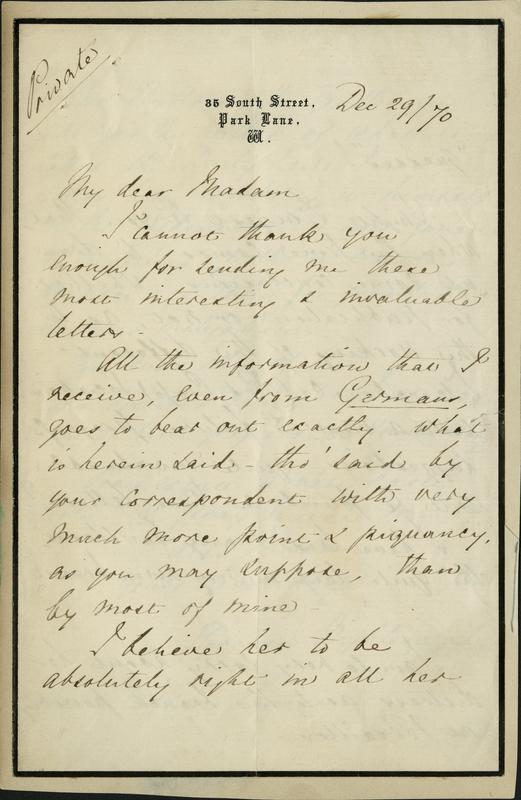 Private
35 South Street,
Park Lane,
W.
Dec 29/70
My dear Madam
I cannot thank you
enough for sending me these
most interesting & invaluable
letters -
All the information that I
receive, even from Germans,
goes to bear out exactly what
is herein said - tho' said by
your correspondent with very
much more point & piquancy,
as you may suppose, than
by most of mine -
I believe her to be
absolutely right in all her